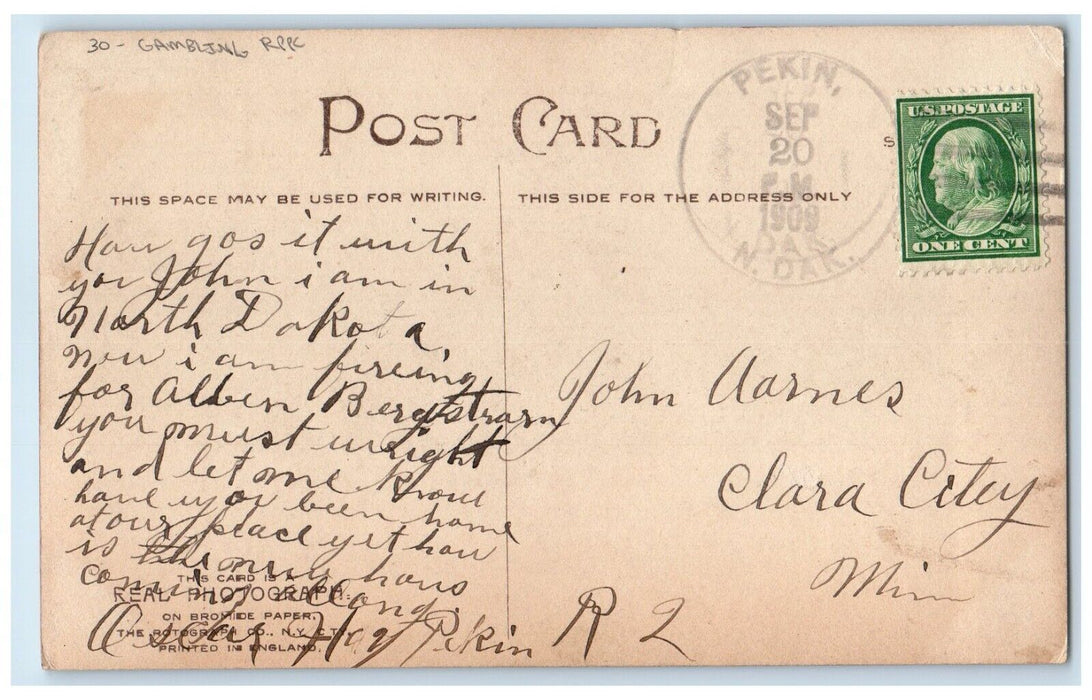 30 - GAMBLING RPPC
POST CARD
THIS SPACE MAY BE USED FOR WRITING.
THIS SIDE FOR THE ADDRESS ONLY
PEKIN,
SEP
20
1909
N. DAK.
U.S. POSTAGE
ONE CENT
How gos it with
you John i am in
North Dakota
now i am fireing
for Alben Bergstrarm
you must wright
and let me know
have you been home
at our place yet how
is the new hous
coming along
Oscar Hag Pekin
John Aarnes
Clara Citey
Minn
R 2
THIS CARD IS A
REAL PHOTOGRAPH
ON BROMIDE PAPER.
THE ROTOGRAPH CO., N.Y. CTY.
PRINTED IN ENGLAND.